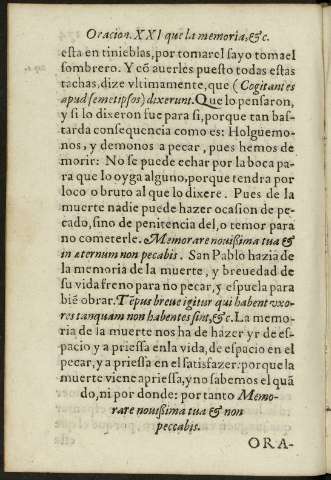 Oracion. XXI que la memoria, &c.
esta en tinieblas, por tomar el sayo toma el
sombrero. Y cõ auerles puesto todas estas
tachas, dize vltimamente, que (Cogitantes
apud semetipsos) dixerunt. Que lo pensaron,
y si lo dixeron fue para si, porque tan bas-
tarda consequencia como es: Holguemo-
nos, y demonos a pecar, pues hemos de
morir: No se puede echar por la boca pa-
ra que lo oyga alguno, porque tendra por
loco o bruto al que lo dixere. Pues de la
muerte nadie puede hazer ocasion de pe-
cado, sino de penitencia del, o temor para
no cometerle. Memorare nouissima tua &
in æternum non peccabis. San Pablo hazia de
la memoria de la muerte, y breuedad de
su vida freno para no pecar, y espuela para
biẽ obrar. Tẽpus breue igitur qui habent vxo-
res tanquam non habentes sint, &c. La memo-
ria de la muerte nos ha de hazer yr de es-
pacio, y a priessa en la vida, de espacio en el
pecar, y a priessa en el satisfazer: porque la
muerte viene apriessa, y no sabemos el quã
do, ni por donde: por tanto Memo-
rare nouissima tua & non
peccabis.
ORA-